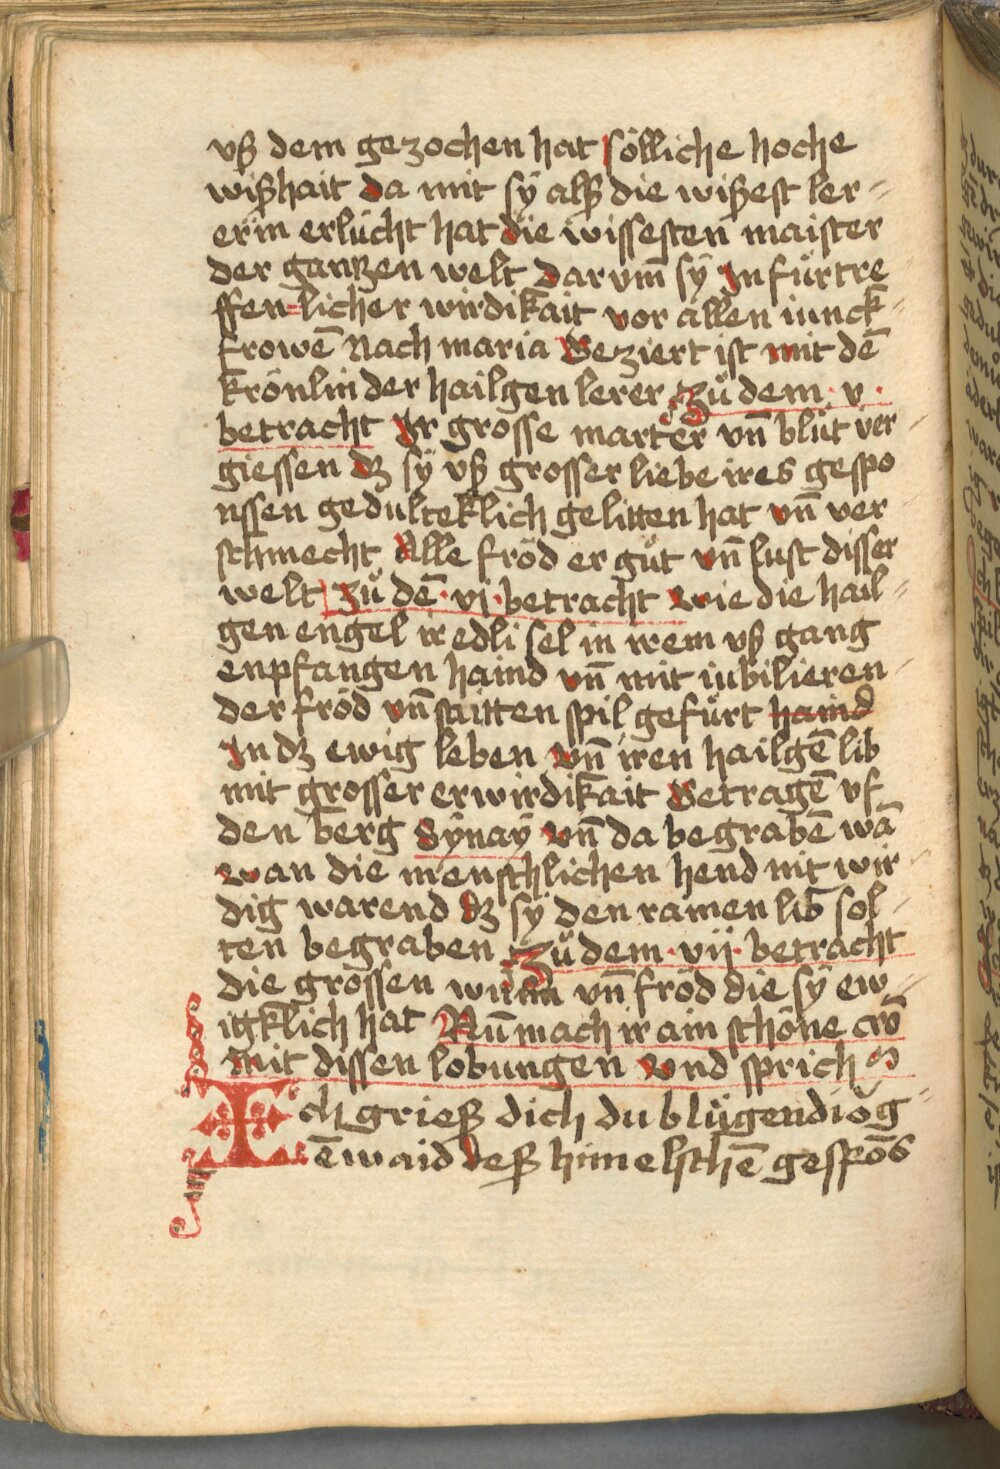 vß dem gezochen hat sölliche hoche
wißhait da mit sÿ alß die wißest ler-
erin erlücht hat die wissesten maister
der gantzen welt darum̄ sÿ jn fürtre
ffen-licher wirdikait vor allen iunck-
frowē Nach maria Geziert ist mit dē
krönlin der hailgen lerer Zů dem · v ·
betracht Ir grosse marter vn̄ blůt ver-
giessen dz sÿ vß grosser liebe ires gespo
nssen gedulteklich gelitten hat vn̄ ver
schmecht Alle fröd er gůt vn̄ lust disser
welt Zů dē · vj · betracht wie die hail-
gen engel ir edli sel in irem vß gang
enpfangen haind vn̄ mit iubilieren-
der fröd vn̄ saitten spil gefůrt haind
In dz ewig leben vn̄ iren hailgē lib
mit grosser erwirdikait Getragē vf
den berg Sÿnaÿ vn̄ da begrabē wā
wan die menschlichen hend nit wir
dig warend dz sÿ den ramen lib sol-
ten begraben Zů dem · vij · betracht
die grossen wunn vn̄ fröd die sÿ ew-
igklich hat Nū mach ir ain schöne crō
mit dissen lobungen vnd sprich
Ich grieß dich du blügendi ög-
ēwaid deß himelschē gespōs